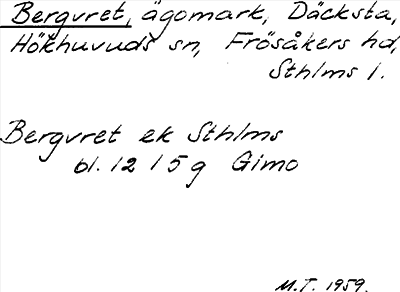 Bergvret, ägomark, Däcksta,
Hökhuvuds sn, Frösåkers hd,
Sthlms l.
Bergvret ek Sthlms
bl. 12 I 5 g Gimo
M.T. 1959.